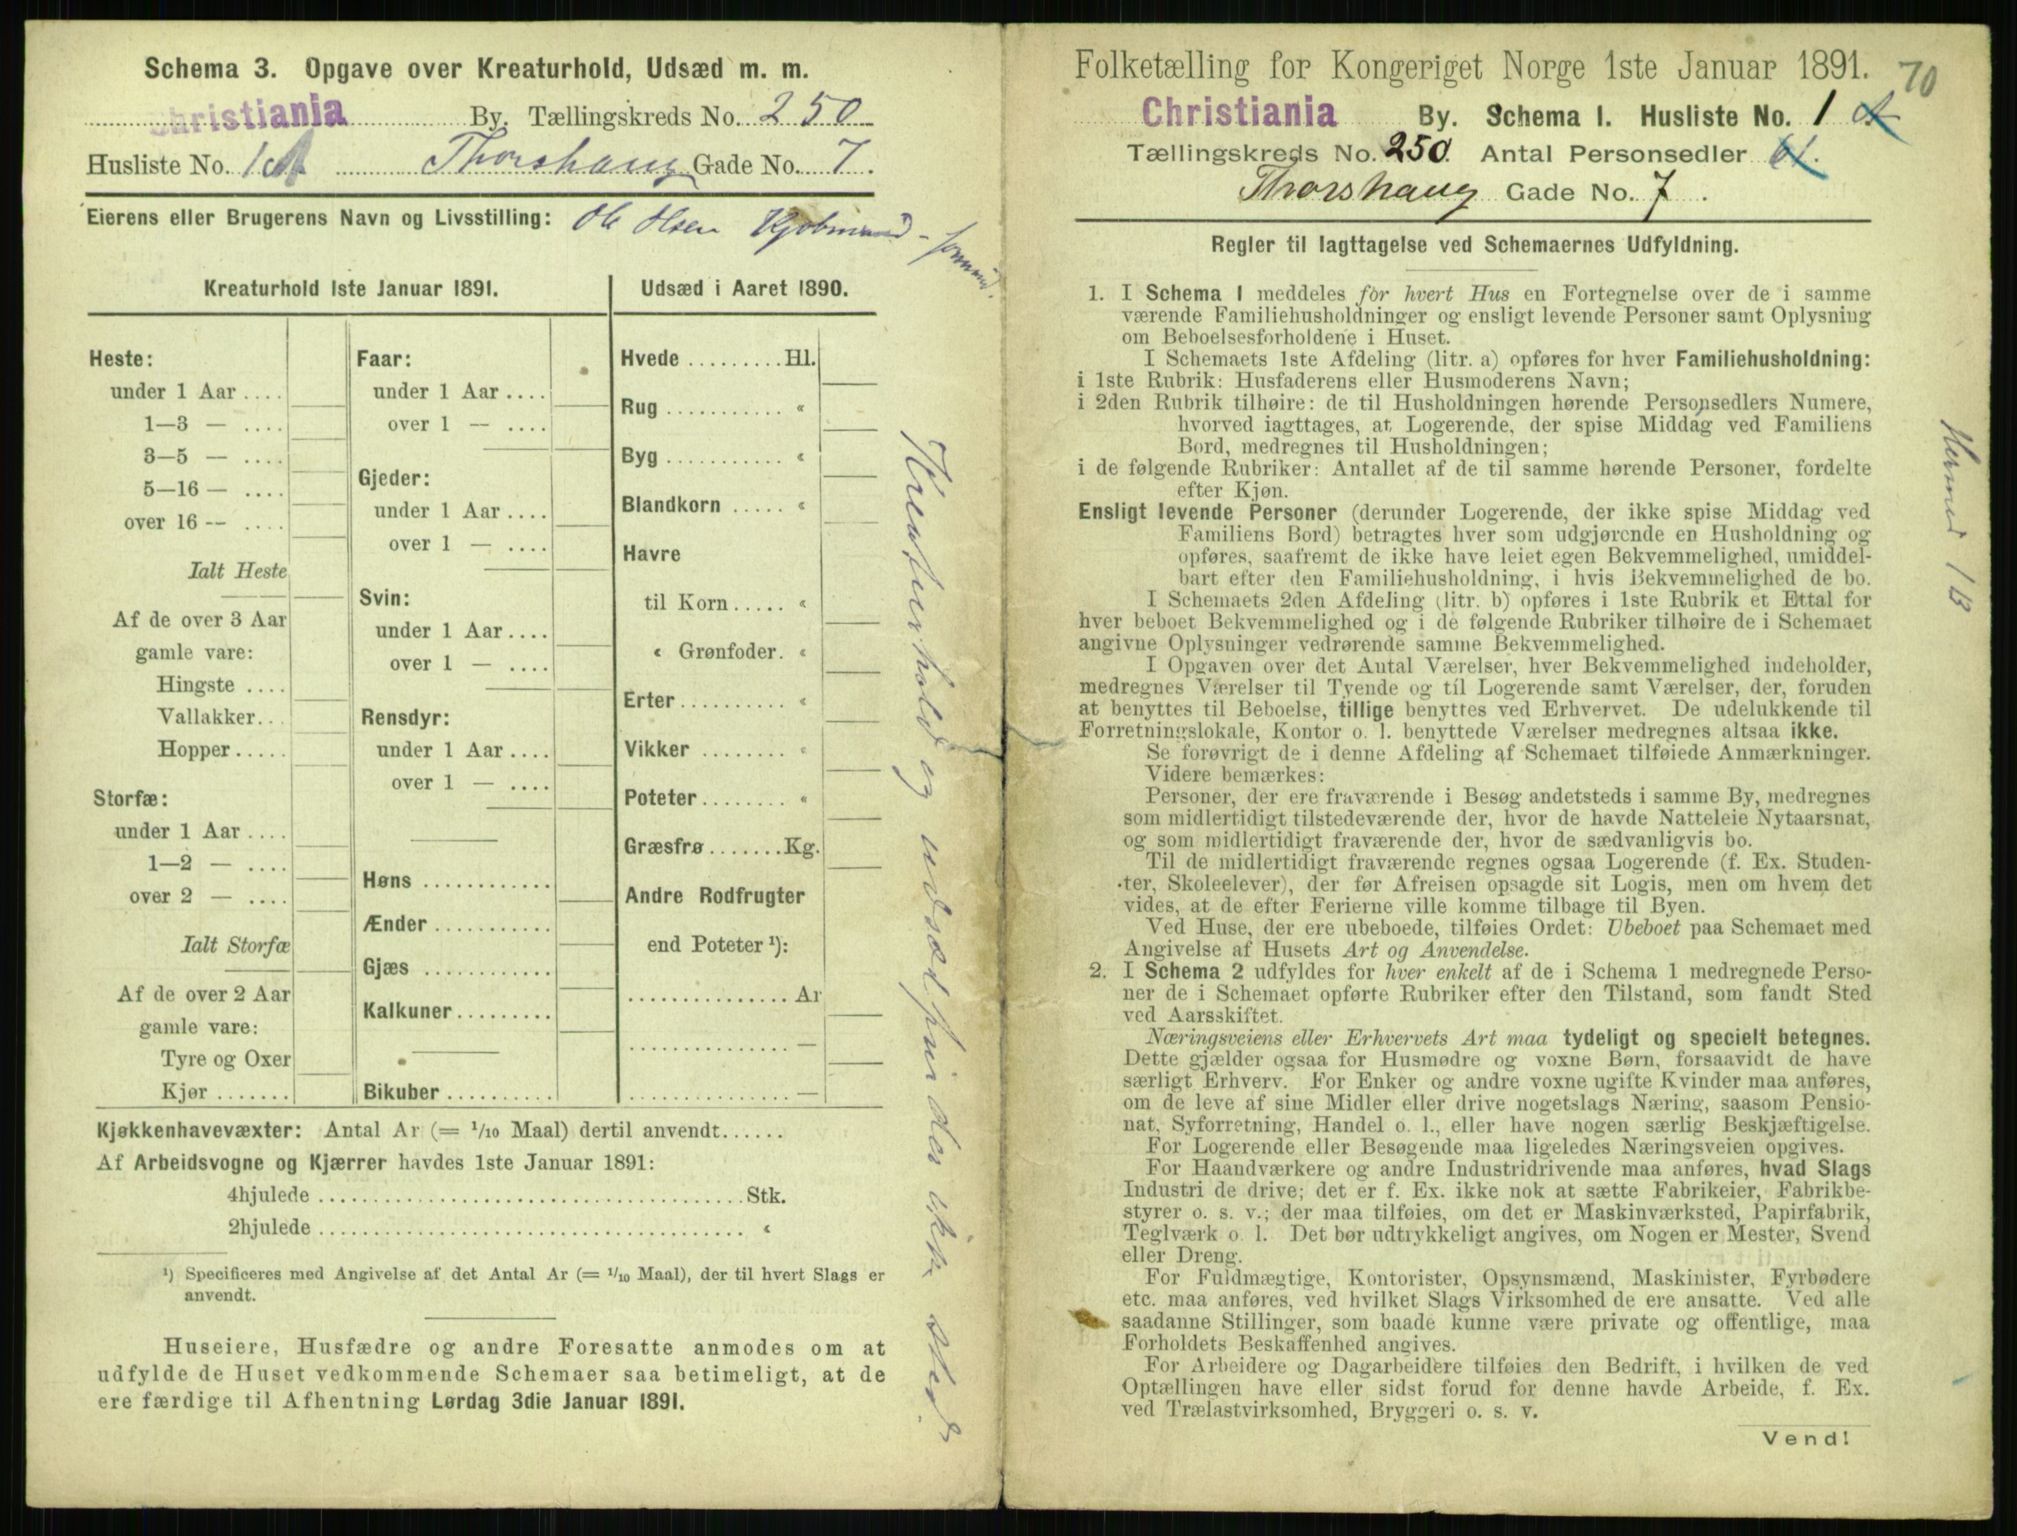 Schema 3. Opgave over Kreaturhold, Udsæd m. m.
Christiania By. Tællingskreds No. 250
Husliste No. 1 A Thorshaug Gade No. 7.
Eierens eller Brugerens Navn og Livsstilling: Ole Olsen Kjøbmand - formand.
Kreaturhold 1ste Januar 1891.
Heste:
under 1 Aar ....
1—3 — ....
3—5 — ....
5—16 — ....
over 16 -- ....
Ialt Heste
Af de over 3 Aar
gamle vare:
Hingste ....
Vallakker...
Hopper.....
Storfæ:
under 1 Aar ....
1—2 — ....
over 2 — ....
Ialt Storfæ
Af de over 2 Aar
gamle vare:
Tyre og Oxer
Kjør .......
Faar:
under 1 Aar ....
over 1 — ....
Gjeder:
under 1 Aar ....
over 1 — ....
Svin:
under 1 Aar....
over 1 — ....
Rensdyr:
under 1 Aar ....
over 1 — ....
Høns ............
Ænder ...........
Gjæs ............
Kalkuner.........
Bikuber ..........
Udsæd i Aaret 1890.
Hvede .........Hl.
Rug ........... «
Byg ........... «
Blandkorn ..... «
Havre
til Korn ..... «
« Grønfoder. «
Erter .......... «
Vikker ......... «
Poteter........ «
Græsfrø.......Kg.
Andre Rodfrugter
end Poteter ¹):
............... Ar
............... —
............... —
Kreaturhold og udsæd finder ikke sted.
Kjøkkenhavevæxter: Antal Ar (= 1/10 Maal) dertil anvendt......
Af Arbeidsvogne og Kjærrer havdes 1ste Januar 1891:
4hjulede ........................................ Stk.
2hjulede ........................................ «
¹) Specificeres med Angivelse af det Antal Ar (= 1/10 Maal), der til hvert Slags er
anvendt.
Huseiere, Husfædre og andre Foresatte anmodes om at
udfylde de Huset vedkommende Schemaer saa betimeligt, at de
ere færdige til Afhentning Lørdag 3die Januar 1891.
Folketælling for Kongeriget Norge 1ste Januar 1891. 70
Christiania By. Schema I. Husliste No. 1 A
Tællingskreds No. 250. Antal Personsedler 61.
Thorshaug Gade No. 7.
Regler til Iagttagelse ved Schemaernes Udfyldning.
1. I Schema I meddeles for hvert Hus en Fortegnelse over de i samme
værende Familiehusholdninger og ensligt levende Personer samt Oplysning
om Beboelsesforholdene i Huset.
I Schemaets 1ste Afdeling (litr. a) opføres for hver Familiehusholdning:
i 1ste Rubrik: Husfaderens eller Husmoderens Navn;
i 2den Rubrik tilhøire: de til Husholdningen hørende Personsedlers Numere,
hvorved iagttages, at Logerende, der spise Middag ved Familiens
Bord, medregnes til Husholdningen;
i de følgende Rubriker: Antallet af de til samme hørende Personer, fordelte
efter Kjøn.
Ensligt levende Personer (derunder Logerende, der ikke spise Middag ved
Familiens Bord) betragtes hver som udgjørende en Husholdning og
opføres, saafremt de ikke have leiet egen Bekvemmelighed, umiddel-
bart efter den Familiehusholdning, i hvis Bekvemmelighed de bo.
I Schemaets 2den Afdeling (litr. b) opføres i 1ste Rubrik et Ettal for
hver beboet Bekvemmelighed og i de følgende Rubriker tilhøire de i Schemaet
angivne Oplysninger vedrørende samme Bekvemmelighed.
I Opgaven over det Antal Værelser, hver Bekvemmelighed indeholder,
medregnes Værelser til Tyende og til Logerende samt Værelser, der, foruden
at benyttes til Beboelse, tillige benyttes ved Erhvervet. De udelukkende til
Forretningslokale, Kontor o. l. benyttede Værelser medregnes altsaa ikke.
Se forøvrigt de i denne Afdeling af Schemaet tilføiede Anmærkninger.
Videre bemærkes:
Personer, der ere fraværende i Besøg andetsteds i samme By, medregnes
som midlertidigt tilstedeværende der, hvor de havde Natteleie Nytaarsnat,
og som midlertidigt fraværende der, hvor de sædvanligvis bo.
Til de midlertidigt fraværende regnes ogsaa Logerende (f. Ex. Studen-
ter, Skoleelever), der før Afreisen opsagde sit Logis, men om hvem det
vides, at de efter Ferierne ville komme tilbage til Byen.
Ved Huse, der ere ubeboede, tilføies Ordet: Ubeboet paa Schemaet med
Angivelse af Husets Art og Anvendelse.
2. I Schema 2 udfyldes for hver enkelt af de i Schema 1 medregnede Perso-
ner de i Schemaet opførte Rubriker efter den Tilstand, som fandt Sted
ved Aarsskiftet.
Næringsveiens eller Erhvervets Art maa tydeligt og specielt betegnes.
Dette gjælder ogsaa for Husmødre og voxne Børn, forsaavidt de have
særligt Erhverv. For Enker og andre voxne ugifte Kvinder maa anføres,
om de leve af sine Midler eller drive nogetslags Næring, saasom Pensio-
nat, Syforretning, Handel o. l., eller have nogen særlig Beskjæftigelse.
For Logerende eller Besøgende maa ligeledes Næringsveien opgives.
For Haandværkere og andre Industridrivende maa anføres, hvad Slags
Industri de drive; det er f. Ex. ikke nok at sætte Fabrikeier, Fabrikbe-
styrer o. s. v.; der maa tilføies, om det er Maskinværksted, Papirfabrik,
Teglværk o. l. Det bør udtrykkeligt angives, om Nogen er Mester, Svend
eller Dreng.
For Fuldmægtige, Kontorister, Opsynsmænd, Maskinister, Fyrbødere
etc. maa anføres, ved hvilket Slags Virksomhed de ere ansatte. Ved alle
saadanne Stillinger, som baade kunne være private og offentlige, maa
Forholdets Beskaffenhed angives.
For Arbeidere og Dagarbeidere tilføies den Bedrift, i hvilken de ved
Optællingen have eller sidst forud for denne havde Arbeide, f. Ex.
ved Trælastvirksomhed, Bryggeri o. s. v.
Vend!
Hermed 1 B